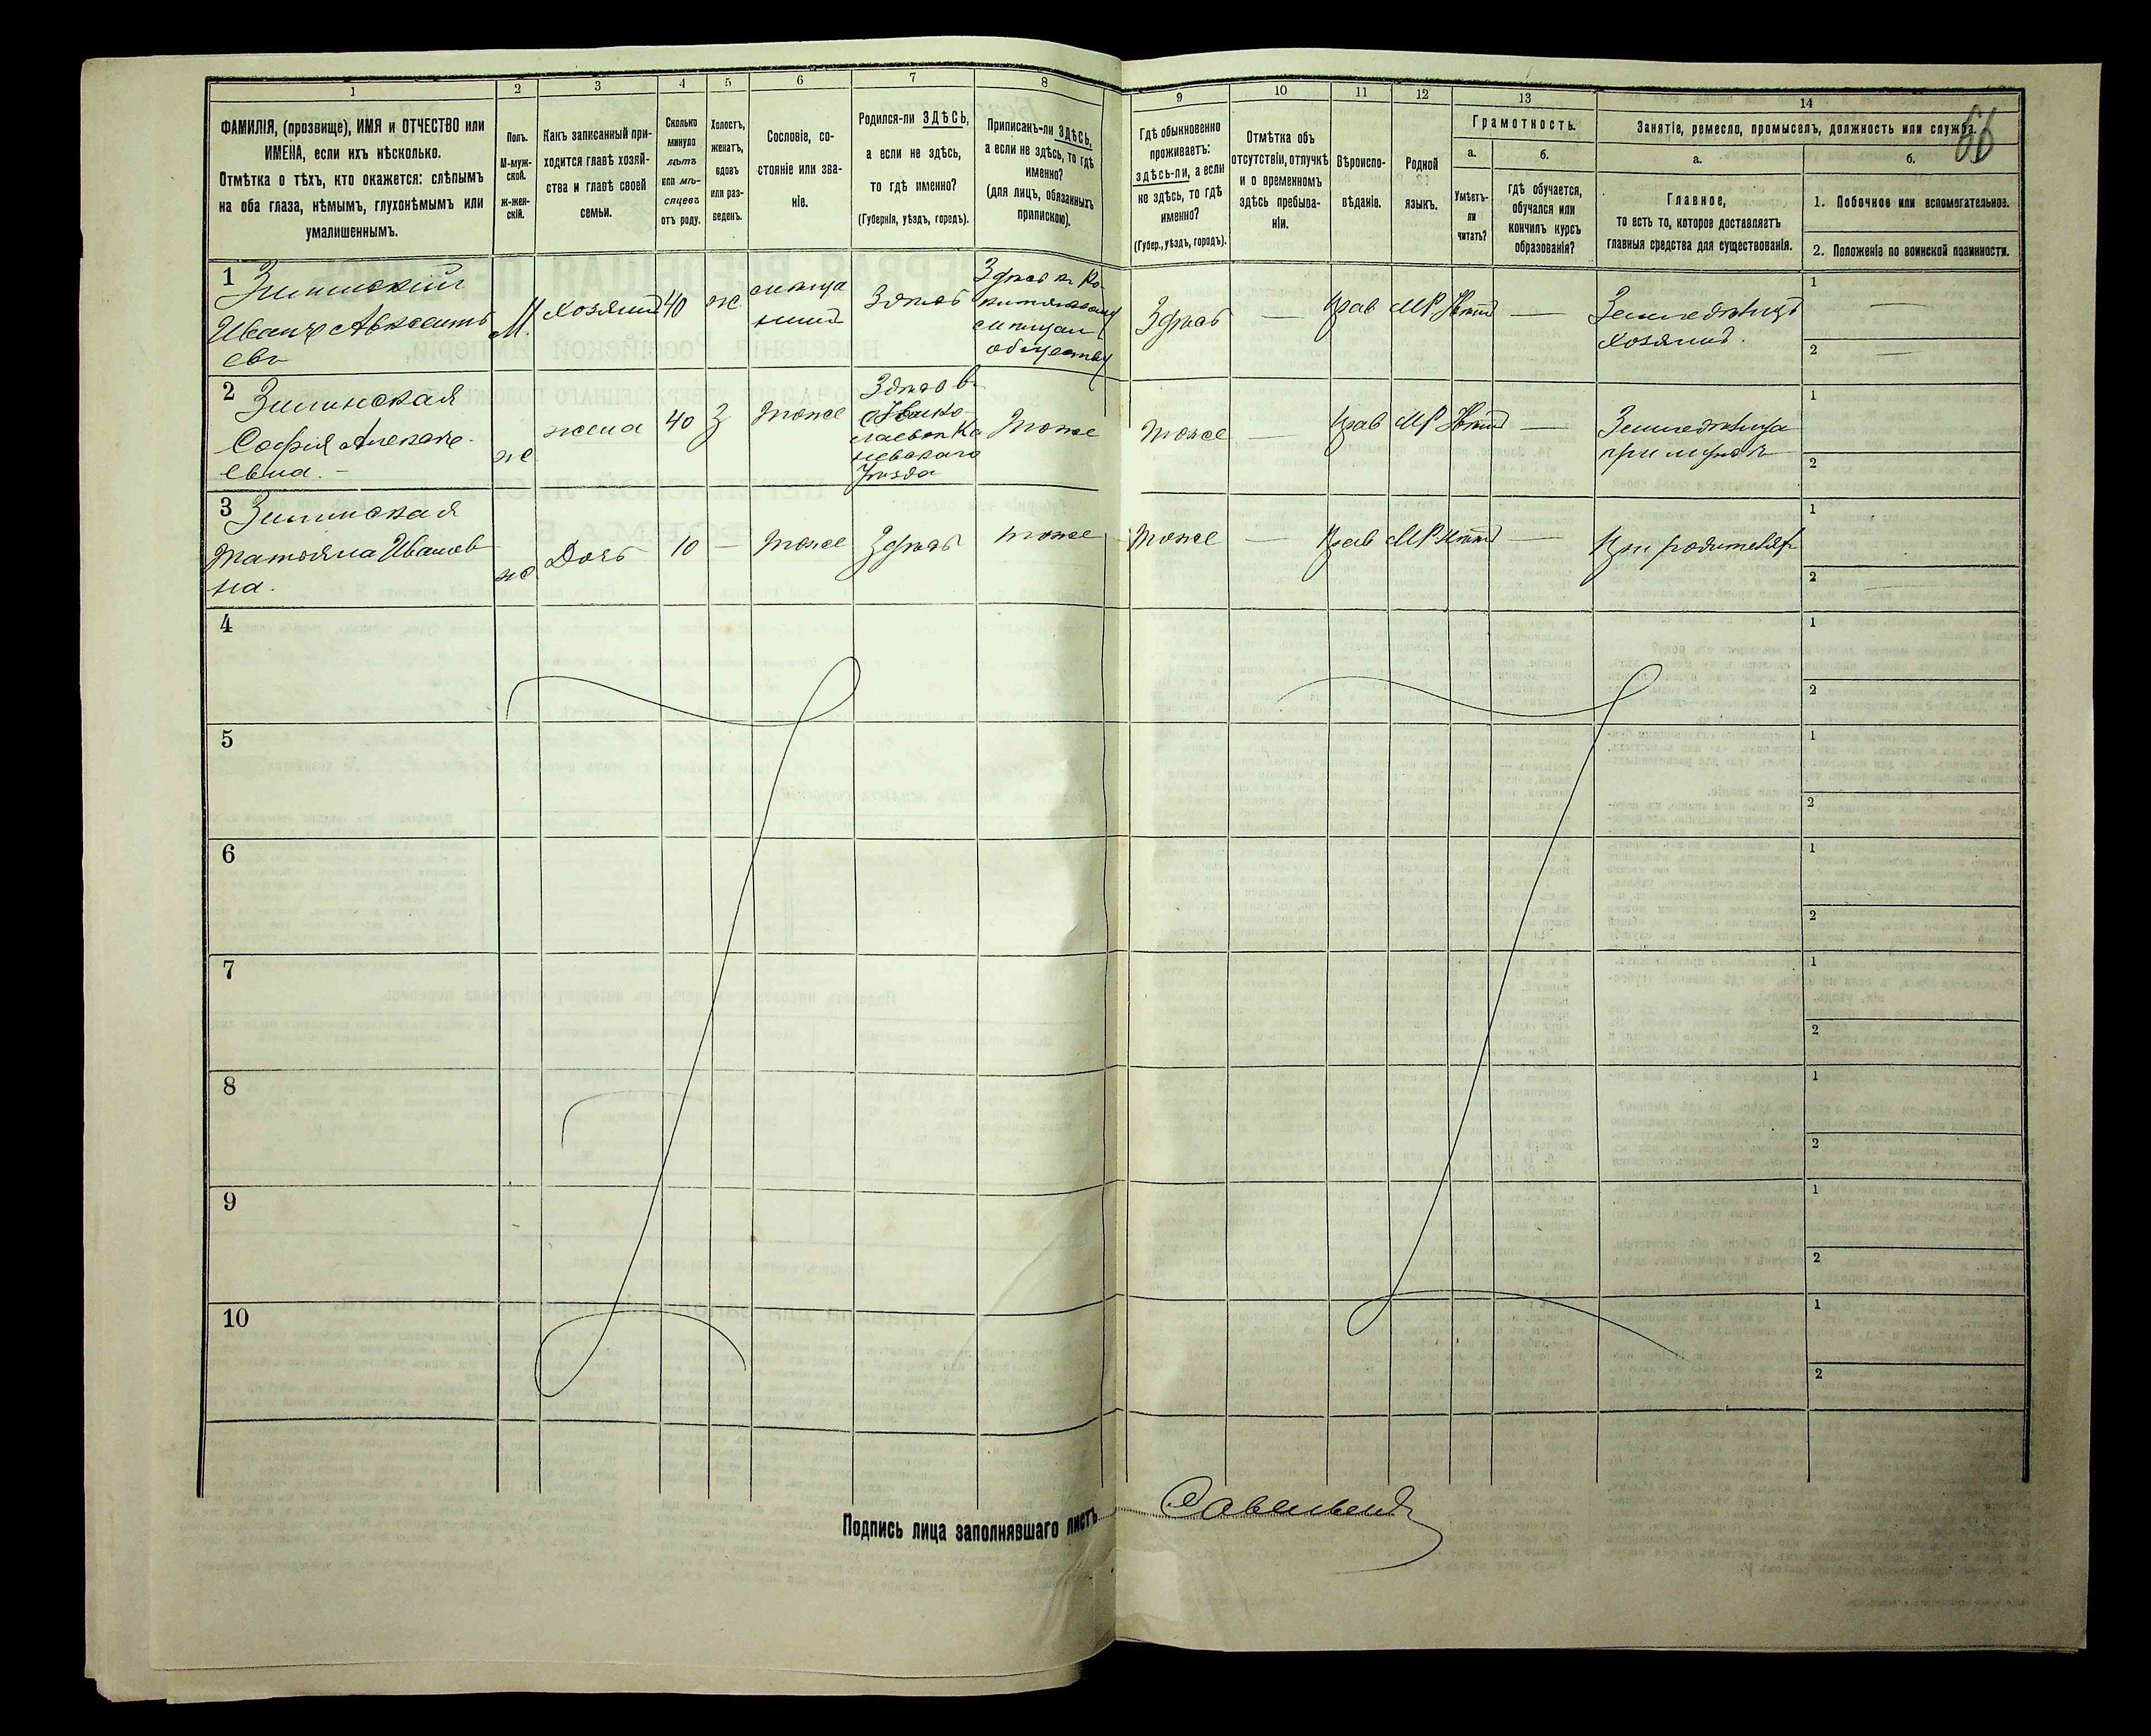 1
2
3
4
5
6
7
8
9
10
11
12
13
14
66
ФАМИЛІЯ, (прозвище), ИМЯ и ОТЧЕСТВО или
ИМЕНА, если ихъ нѣсколько.
Отмѣтка о тѣхъ, кто окажется: слѣпымъ
на оба глаза, нѣмымъ, глухонѣмымъ или
умалишеннымъ.
Полъ.
М-муж-
ской.
ж-жен-
скій.
Какъ записанный при-
ходится главѣ хозяй-
ства и главѣ своей
семьи.
Сколько
минуло
лѣтъ
или мѣ-
сяцевъ
отъ роду.
Холостъ,
женатъ,
вдовъ
или раз-
веденъ.
Сословіе, со-
стояніе или зва-
ніе.
Родился-ли ЗДѢСЬ,
а если не здѣсь,
то гдѣ именно?
(Губернія, уѣздъ, городъ).
Приписанъ-ли ЗДѢСЬ,
а если не здѣсь, то гдѣ
именно?
(для лицъ, обязанныхъ
припискою).
Гдѣ обыкновенно
проживаетъ:
здѣсь-ли, а если
не здѣсь, то гдѣ
именно?
(Губер., уѣздъ, городъ).
Отмѣтка объ
отсутствіи, отлучкѣ
и о временномъ
здѣсь пребыва-
ніи.
Вѣроиспо-
вѣданіе.
Родной
языкъ.
Грамотность.
а.
Умѣетъ-
ли
читать?
б.
гдѣ обучается,
обучался или
кончилъ курсъ
образованія?
Занятіе, ремесло, промыселъ, должность или служба.
а.
Главное,
то есть то, которое доставляетъ
главныя средства для существованія.
б.
1. Побочное или вспомогательное.
2. Положеніе по воинской повинности.
1
Зилинскій
Иванъ Авксентъ
евъ
М
Хозяинъ
40
ж
Здѣсь
Здѣсь
—
Прав
МР
Нѣтъ
—
Земледѣлецъ
хозяинъ.
1 —
2 —
2
Зилинская
София Алексѣ-
евна. -
ж
жена
40
З
тоже
Здѣсь въ
уѣзда
тоже
тоже
—
Прав
МР
Нѣтъ
—
Земледѣлица
при мужѣ
1
2
3
Зилинская
Татьяна Иванов
на.
ж
Дочь
10
—
тоже
Здѣсь
тоже
тоже
—
Прав
МР
Нѣтъ
—
При родителяхъ
1
2
4
1
2
5
1
2
6
1
2
7
1
2
8
1
2
9
1
2
10
1
2
Подпись лица заполнявшаго листъ